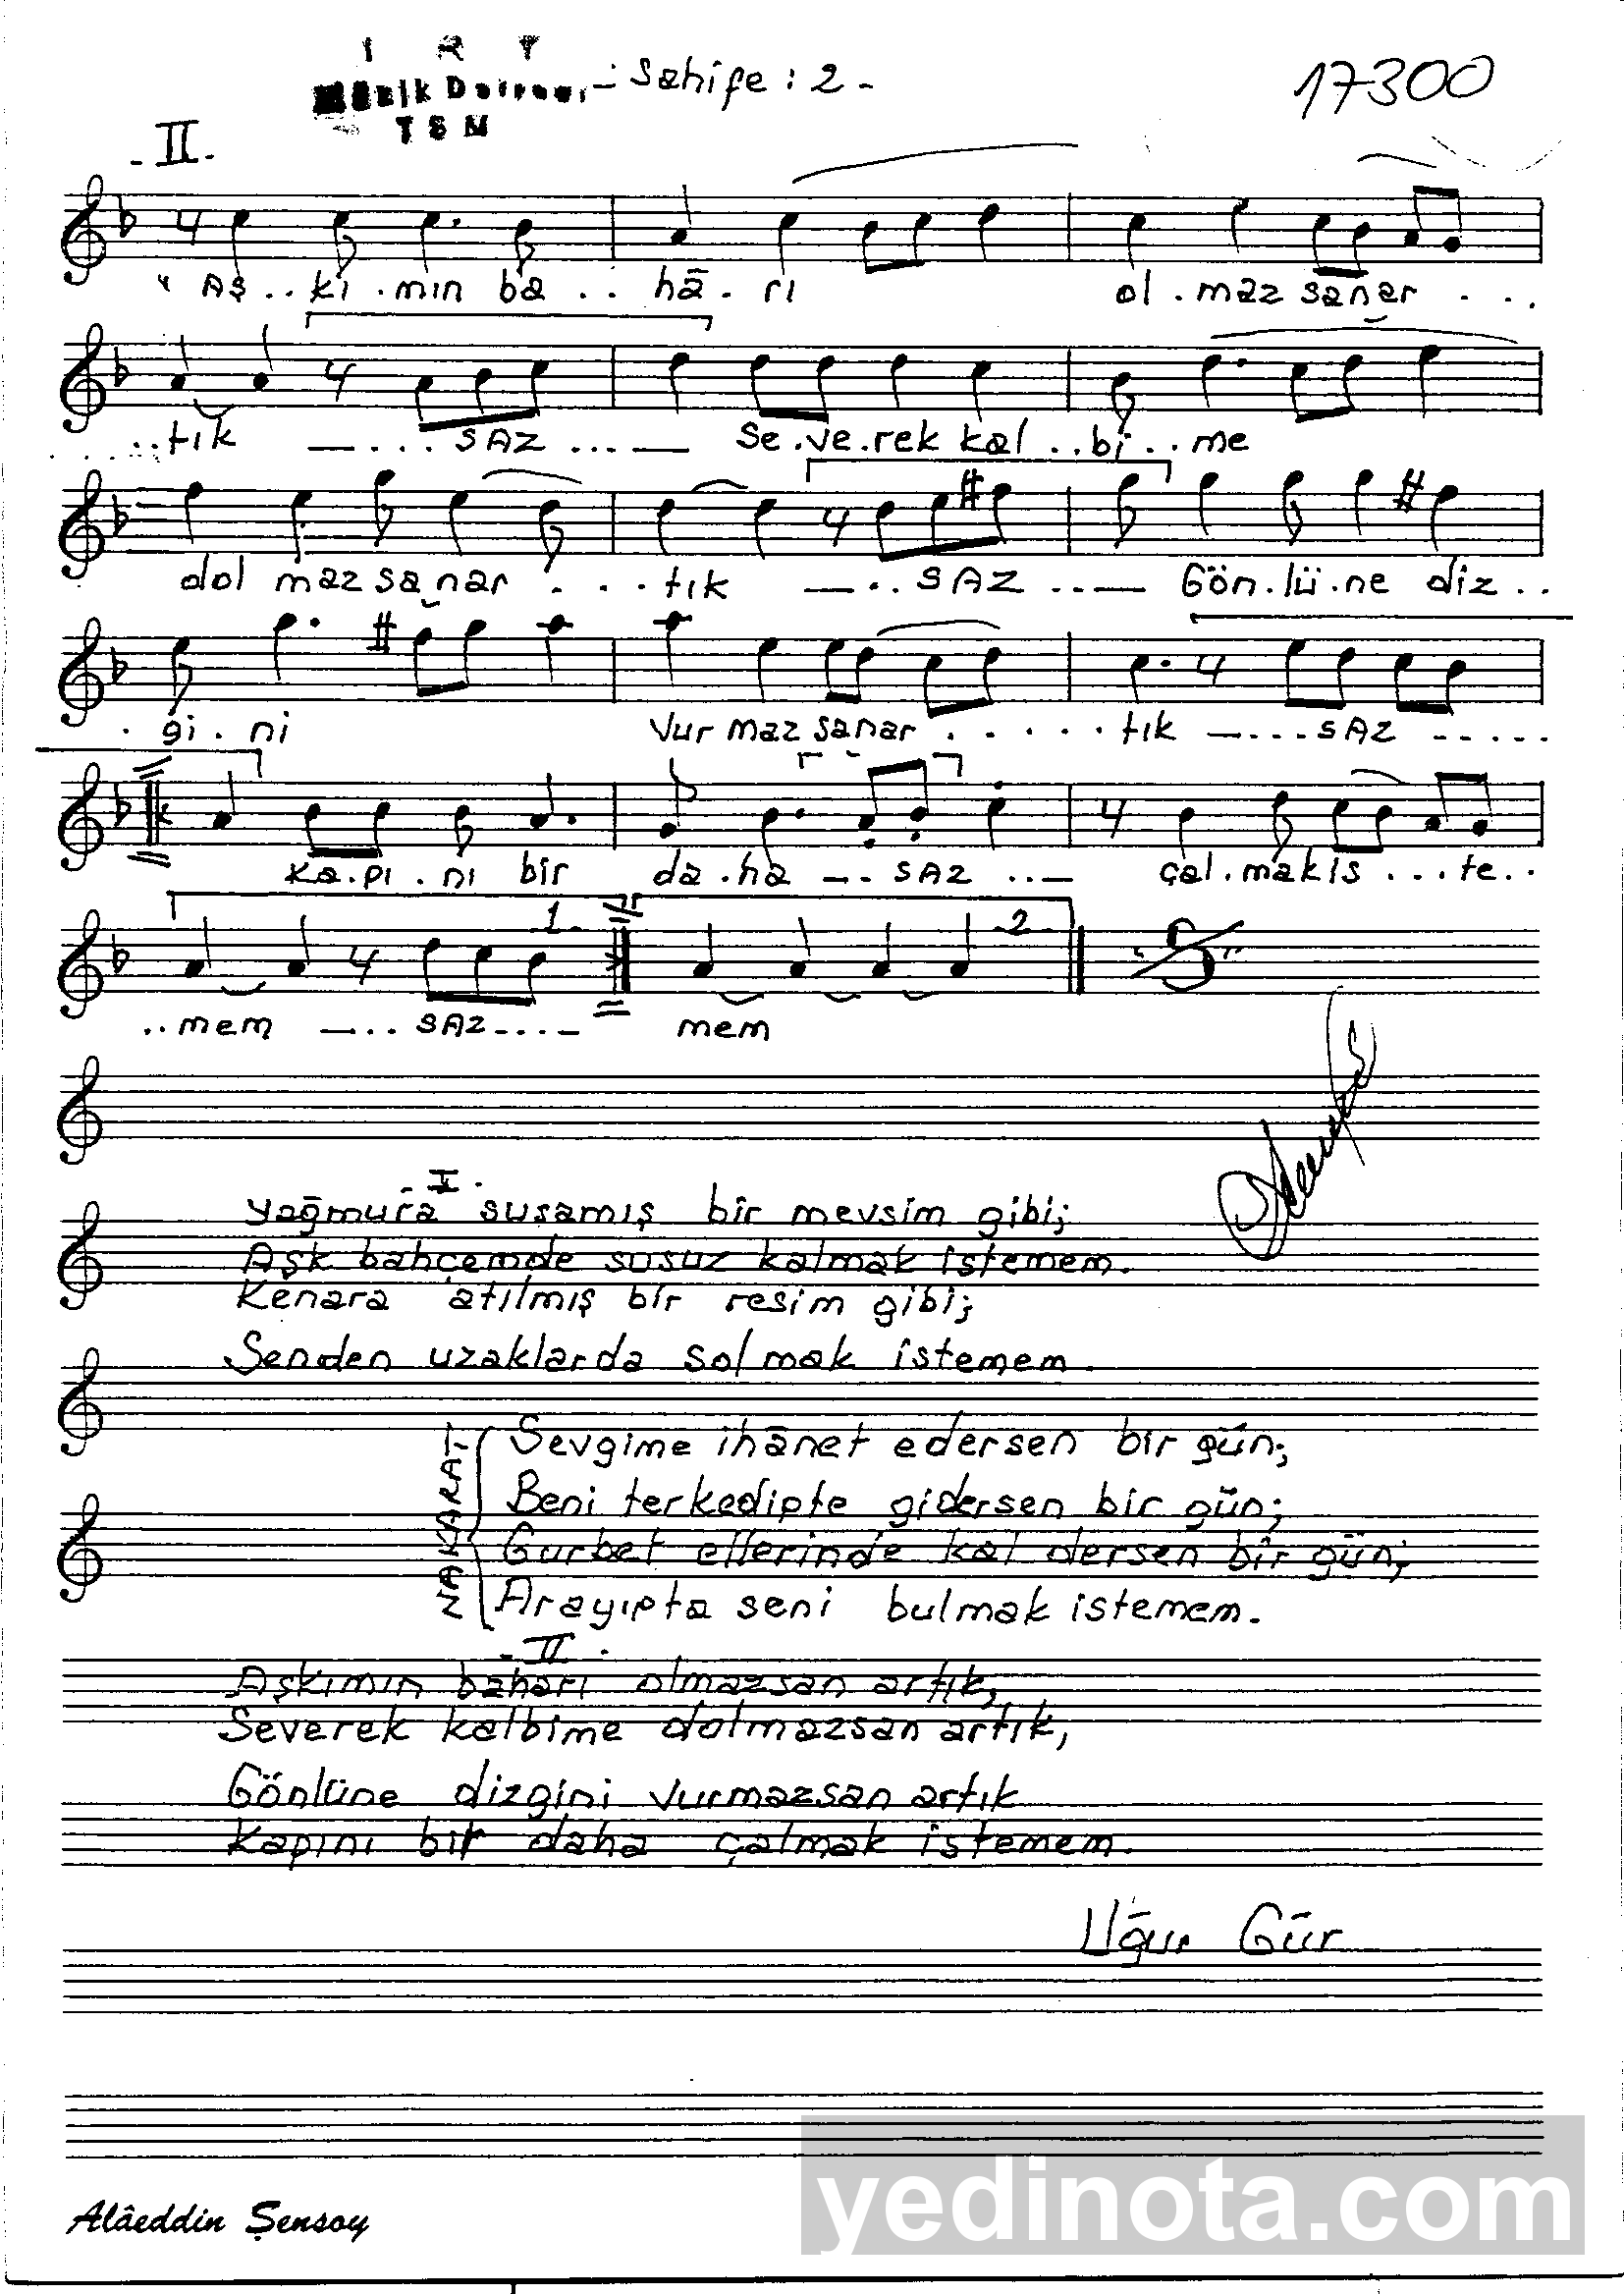 T R T
Müzik Dairesi
TSM
- Sahife : 2 -
17300
- II -
" Aş . . kı . mın ba . . hā . rı ol . maz sanar . . .
. . tık — . . . . SAZ . . . — Se . ve . rek kal . . bi . . me
dol maz sanar . . . tık — . . SAZ . . — Gön . lü . ne diz . .
. gi . ni vur maz sanar . . . . . tık — . . . SAZ - - - - -
Ka . pı . nı bir da . ha — - - SAZ . . — çal . mak is . . . te . .
1 2
. . mem — . . . SAZ - . . . - mem
- I -
Yağmura susamış bir mevsim gibi;
Aşk bahçemde susuz kalmak istemem.
Kenara atılmış bir resim gibi;
Senden uzaklarda solmak istemem.
NAKARAT
Sevgime ihānet edersen bir gün;
Beni terkedipte gidersen bir gün;
Gurbet ellerinde kal dersen bir gün;
Arayıpta seni bulmak istemem.
- II -
Aşkımın baharı olmazsan artık,
Severek kalbime dolmazsan artık,
Gönlüne dizgini vurmazsan artık
Kapını bir daha çalmak istemem.
Uğur Gür
yedinota.com
Alâeddin Şensoy